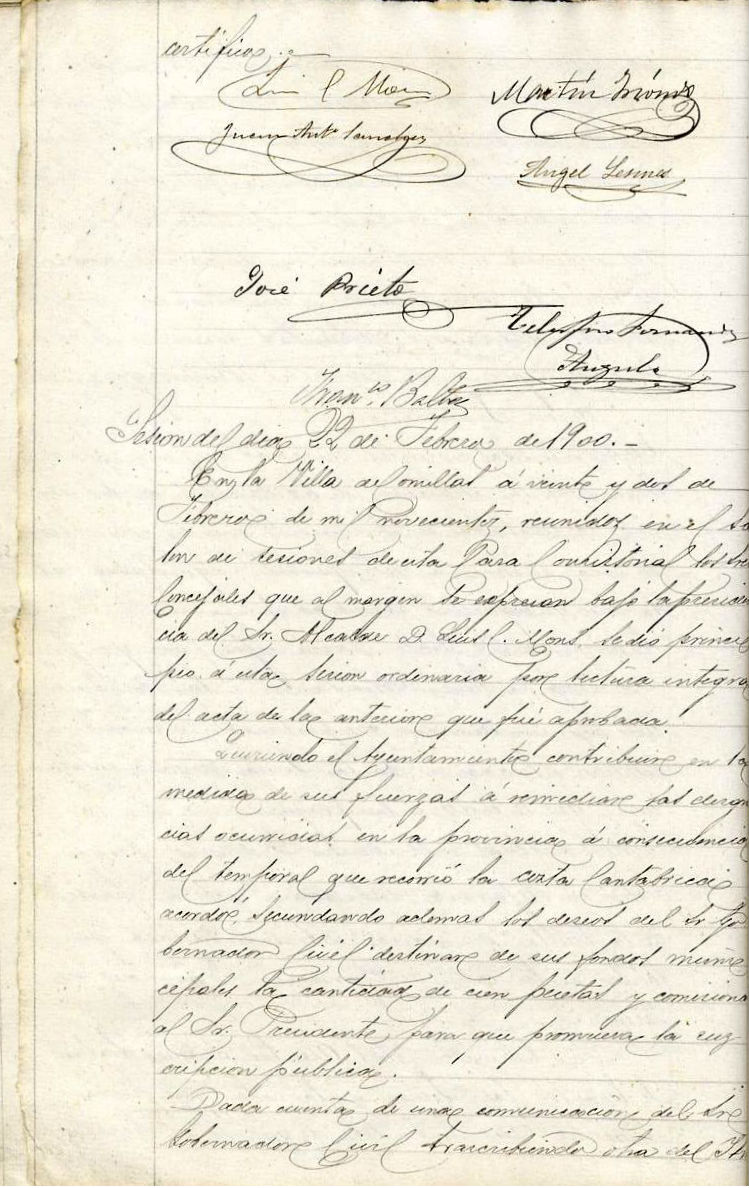 certifico.
Luis C. Mons
Martin
Juan Ant.º
Angel
José Prieto
Telesforo Fernandez
Angulo
Fran.co Balbas
Sesion del dia 22 de Febrero de 1900.–
En la Villa de Comillas á veinte y dos de
Febrero de mil novecientos, reunidos en el sa
lon de sesiones de esta Casa Consistorial los Sres
Concejales que al margen se expresan bajo la presiden
cia del Sr. Alcalde D. Luis C. Mons. se dio princi
pio á esta sesion ordinaria por lectura integra
del acta de la anterior que fué aprobada.
Queriendo el Ayuntamiento contribuir en la
medida de sus fuerzas á remediar las desgra
cias ocurridas en la provincia á consecuencia
del temporal que recorrió la costa Cantabrica
acordó, secundando ademas los deseos del Sr. Go
bernador Civil destinar de sus fondos muni
cipales la cantidad de cien pesetas y comisiona
al Sr. Presidente para que promueva la sus
cripcion publica.
Dada cuenta de una comunicacion del Sr
Gobernador Civil trascribiendo otra del